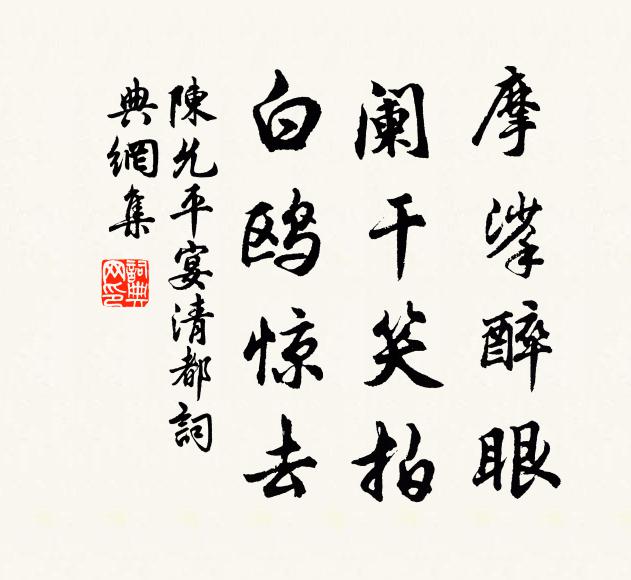 摩挲醉眼
阑干笑拍
白鸥惊去
陳允平宴清都詞
典網集
詞典网印